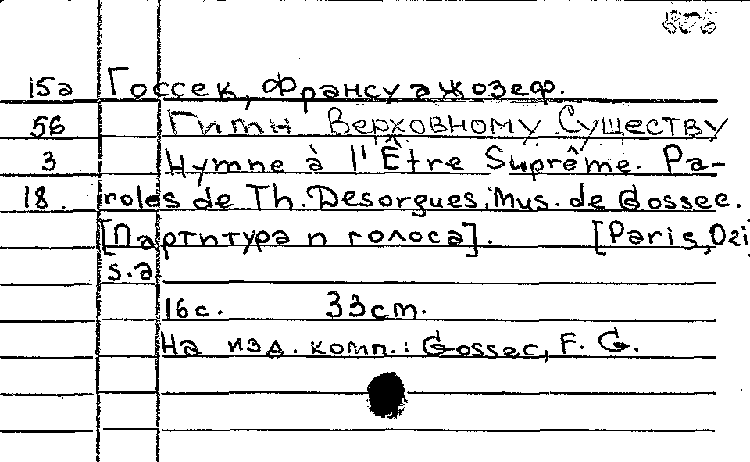 15а Госсек, Франсуа жозеф.
56 Гимн Верховному Существу
3 Hymne à l'Être Suprême. Pa-
18. roles de Th. Desorgues, Mus. de Gossec.
[Партитура и голоса]. [Paris,
s.a
16 с. 33 cm.
На изд. комп.: Gossec, F. G.